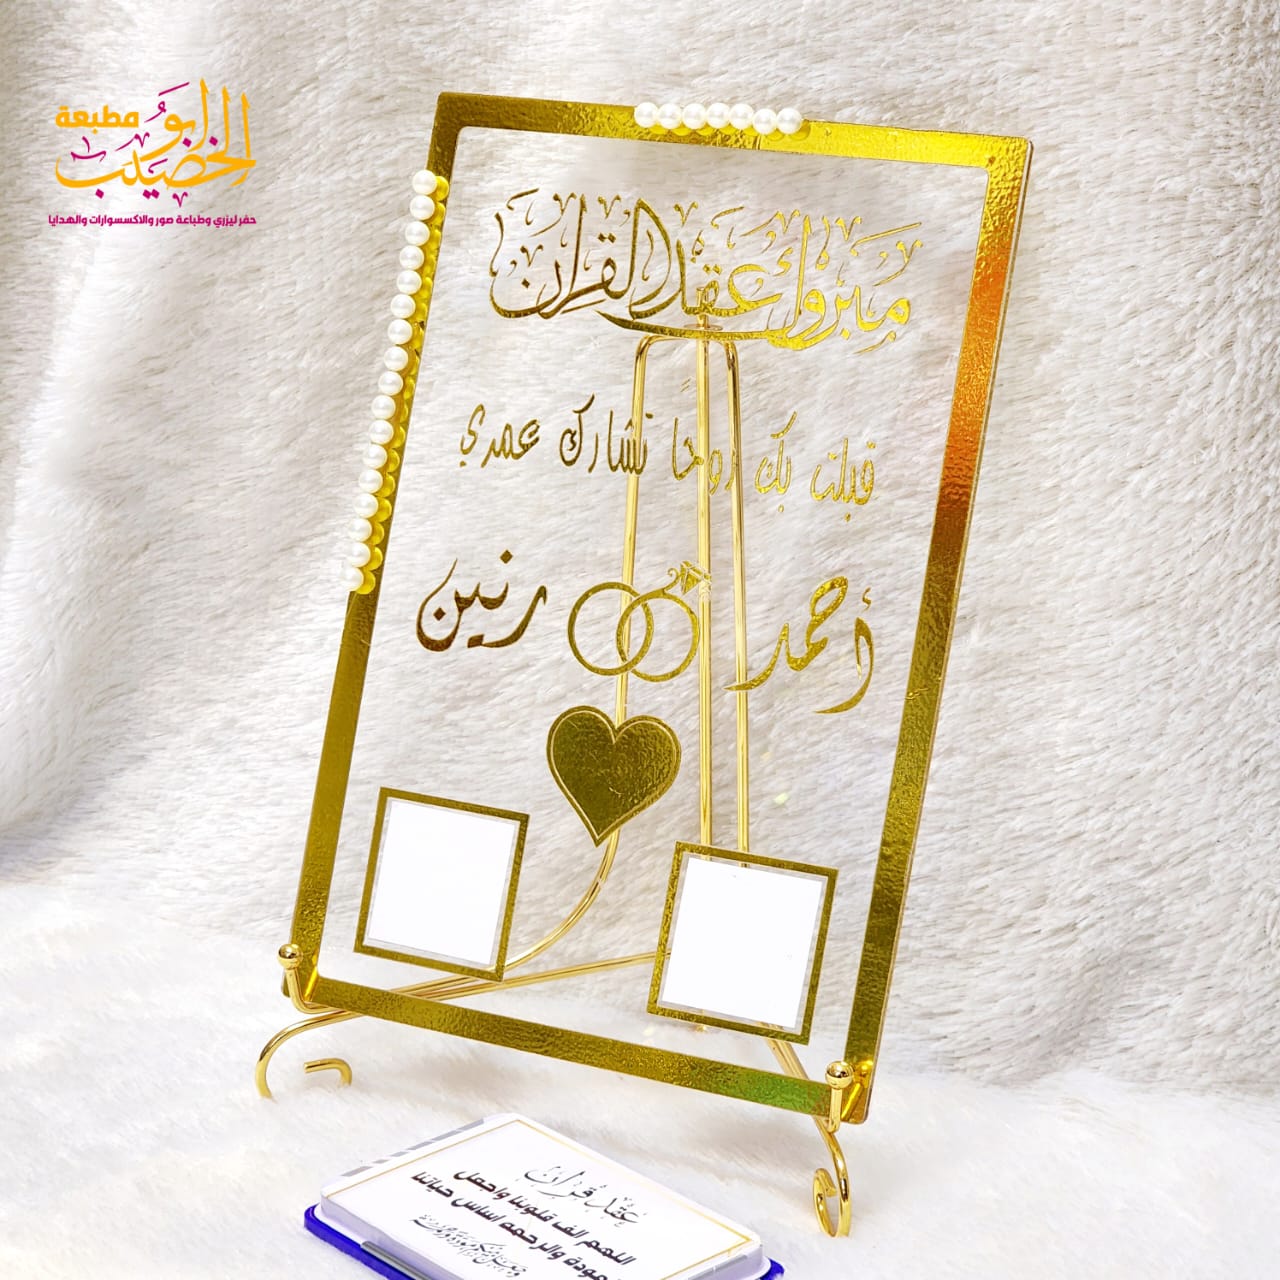 مطبعة
ابو الخصيب
حفر ليزري وطباعة صور والاكسسوارات والهدايا
مبروك عقد القران
قبلت بك روحًا تشارك عمري
أحمد رنين
عقد قران
اللهم الف قلوبنا واجعل
المودة والرحمه اساس حياتنا
وجعل بينكم مودة ورحمة